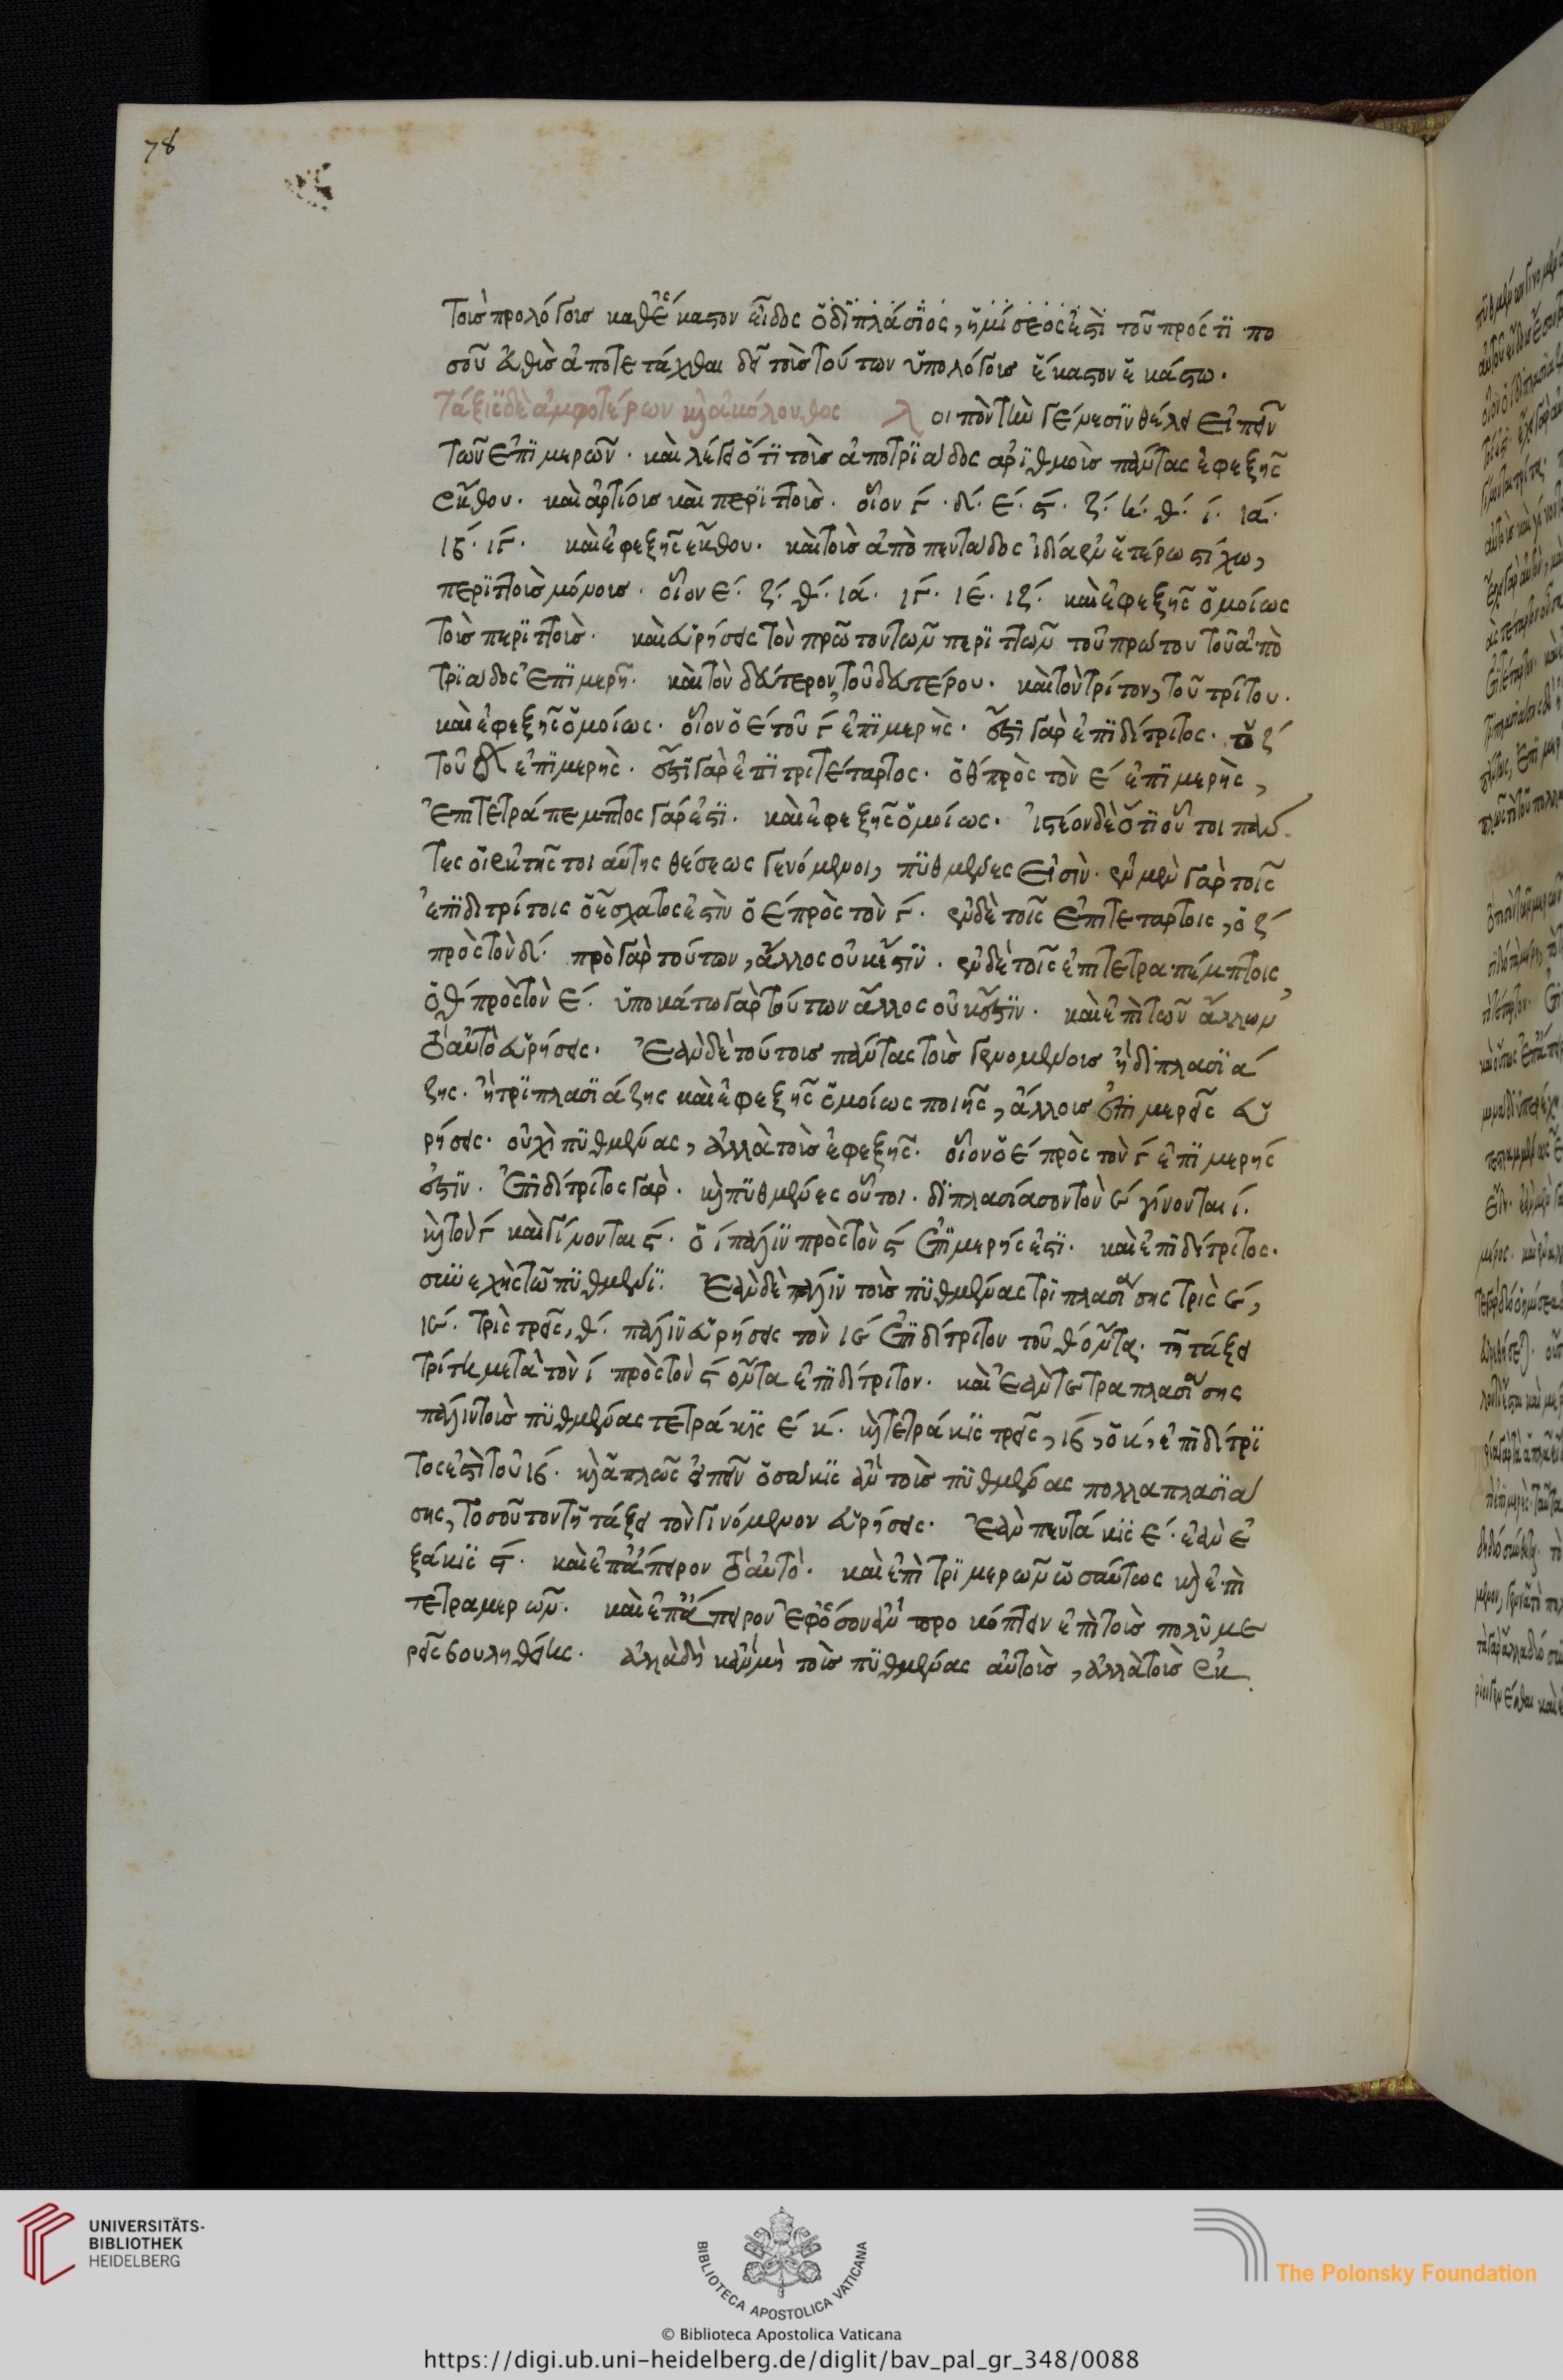 78
τοῖς προλόγοις καθ' ἕκαστον εἶδος ὁ διπλάσιος, ἡμίσεός ἐστι τοῦ πρός τι πο
σοῦ αὖθις ἀποτετάχθαι δεῖ τοῖς τούτων ὑπολόγοις ἕκαστον ἑκάστω.
Τάξις δὲ ἀμφοτέρων καὶ ἀκόλουθος λοιπὸν τὴν γένεσιν θέλει εἰπεῖν
τῶν ἐπιμερῶν. καὶ λέγει ὅτι τοῖς ἀπο τριάδος ἀριθμοῖς πάντας ἐφεξῆς
ἐκθου. καὶ ἀρτίοις καὶ περιττοῖς. οἷον γ. δ. ε. ς. ζ. η. θ. ι. ια.
ιβ. ιγ. καὶ ἐφεξῆς ἐκθου. καὶ τοῖς ἀπὸ πεντάδος ἰδία ἐν ἑτέρω στίχω,
περιττοῖς μόνοις. οἷον ε. ζ. θ. ια. ιγ. ιε. ιζ. καὶ ἐφεξῆς ὁμοίως
τοῖς περιττοῖς. καὶ εὑρήσεις τὸν πρῶτον τῶν περιττῶν τοῦ πρώτου τοῦ ἀπὸ
τριάδος ἐπιμερῆ. καὶ τὸν δεύτερον, τοῦ δευτέρου. καὶ τὸν τρίτον, τοῦ τρίτου.
καὶ ἐφεξῆς ὁμοίως. οἷον ὁ ε τοῦ γ ἐπιμερὴς. ἔστι γὰρ ἐπιδίτριτος. ὁ ζ
τοῦ δ ἐπιμερὴς. ἔστι γὰρ ἐπιτριτέταρτος. ὁ θ πρὸς τὸν ε ἐπιμερὴς,
ἐπιτετράπεμπτος γάρ ἐστι. καὶ ἐφεξῆς ὁμοίως. ἰστέον δὲ ὅτι οὗτοι πάν
τες οἱ ἐκ τῆς τοιαύτης θέσεως γενόμενοι, πυθμένες εἰσὶν. ἐν μὲν γὰρ τοῖς
ἐπιδιτρίτοις ὁ ἔσχατος ἐστὶν ὁ ε πρὸς τὸν γ. ἐν δὲ τοῖς ἐπιτετάρτοις, ὁ ζ
πρὸς τὸν δ. πρὸ γὰρ τούτων, ἄλλος οὐκ ἔστιν. ἐν δὲ τοῖς ἐπιτετραπέμπτοις
ὁ θ πρὸς τὸν ε. ὑποκάτω γὰρ τούτων ἄλλος οὐκ ἔστιν. καὶ ἐπὶ τῶν ἄλλων
τὸ αὐτὸ εὑρήσεις. Ἐὰν δὲ τούτοις πάντας τοῖς γενομένοις ἢ διπλασιά
ζης. ἢ τριπλασιάζης καὶ ἐφεξῆς ὁμοίως ποιῆς, ἄλλοις ἐπιμερεῖς εὑ
ρήσεις. οὐχὶ πυθμένας, ἀλλὰ τοῖς ἐφεξῆς. οἷον ὁ ε πρὸς τὸν γ ἐπιμερής
ἐστιν. ἐπιδίτριτος γὰρ. καὶ πυθμένες οὗτοι. διπλασίασον τὸν ε γίνονται ι.
καὶ τὸν γ καὶ γίνονται ς. ὁ ι πάλιν πρὸς τὸν ς ἐπιμερής ἐστι. καὶ ἐπιδίτριτος.
συνεχὴς τῶ πυθμένι. Ἐὰν δὲ πάλιν τοῖς πυθμένας τριπλασιάσης τρὶς ε,
ιε. τρὶς τρεῖς, θ. πάλιν εὑρήσεις τὸν ιε ἐπιδίτριτον τοῦ θ ὄντα. τῆ τάξει
τρίτη μετὰ τὸν ι πρὸς τὸν ς ὄντα ἐπιδίτριτον. καὶ ἐὰν τετραπλασιάσης
πάλιν τοῖς πυθμένας τετράκις ε κ. καὶ τετράκις τρεῖς, ιβ, ὁ κ, ἐπιδίτρι
τος ἐστὶ τοῦ ιβ. καὶ ἁπλῶς εἰπεῖν ὁσάκις ἂν τοῖς πυθμένας πολλαπλασιά
σης, τοσοῦτον τῆ τάξει τὸν γινόμενον εὑρήσεις. Ἐὰν πεντάκις ε. ἐὰν ἐ
ξάκις ς. καὶ ἐπ' ἄπειρον τὸ αὐτὸ. καὶ ἐπὶ τριμερῶν ὡσαύτως καὶ ἐπὶ
τετραμερῶν. καὶ ἐπ' ἄπειρον ἐφ' ὅσον ἂν προκόπτειν ἐπὶ τοῖς πολυμε
ρεῖς βουληθείης. ἀλλὰ δὴ κἂν μὴ τοῖς πυθμένας αὐτοῖς, ἀλλὰ τοῖς ἐκ
UNIVERSITÄTS-
BIBLIOTHEK
HEIDELBERG
BIBLIOTECA APOSTOLICA VATICANA
The Polonsky Foundation
© Biblioteca Apostolica Vaticana
https://digi.ub.uni-heidelberg.de/diglit/bav_pal_gr_348/0088